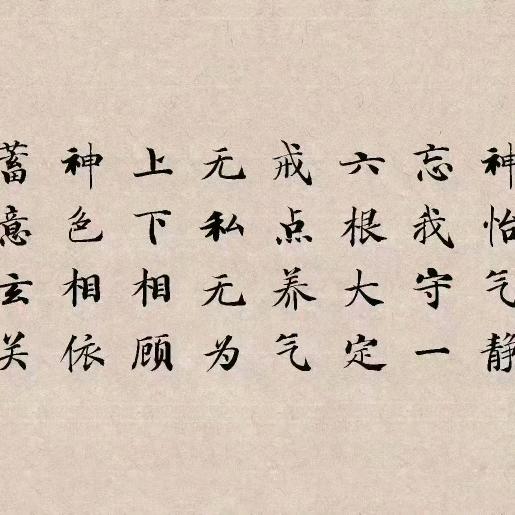 神怡气静
忘我守一
六根大定
戒点养气
无私无为
上下相顾
神色相依
蓄意玄关